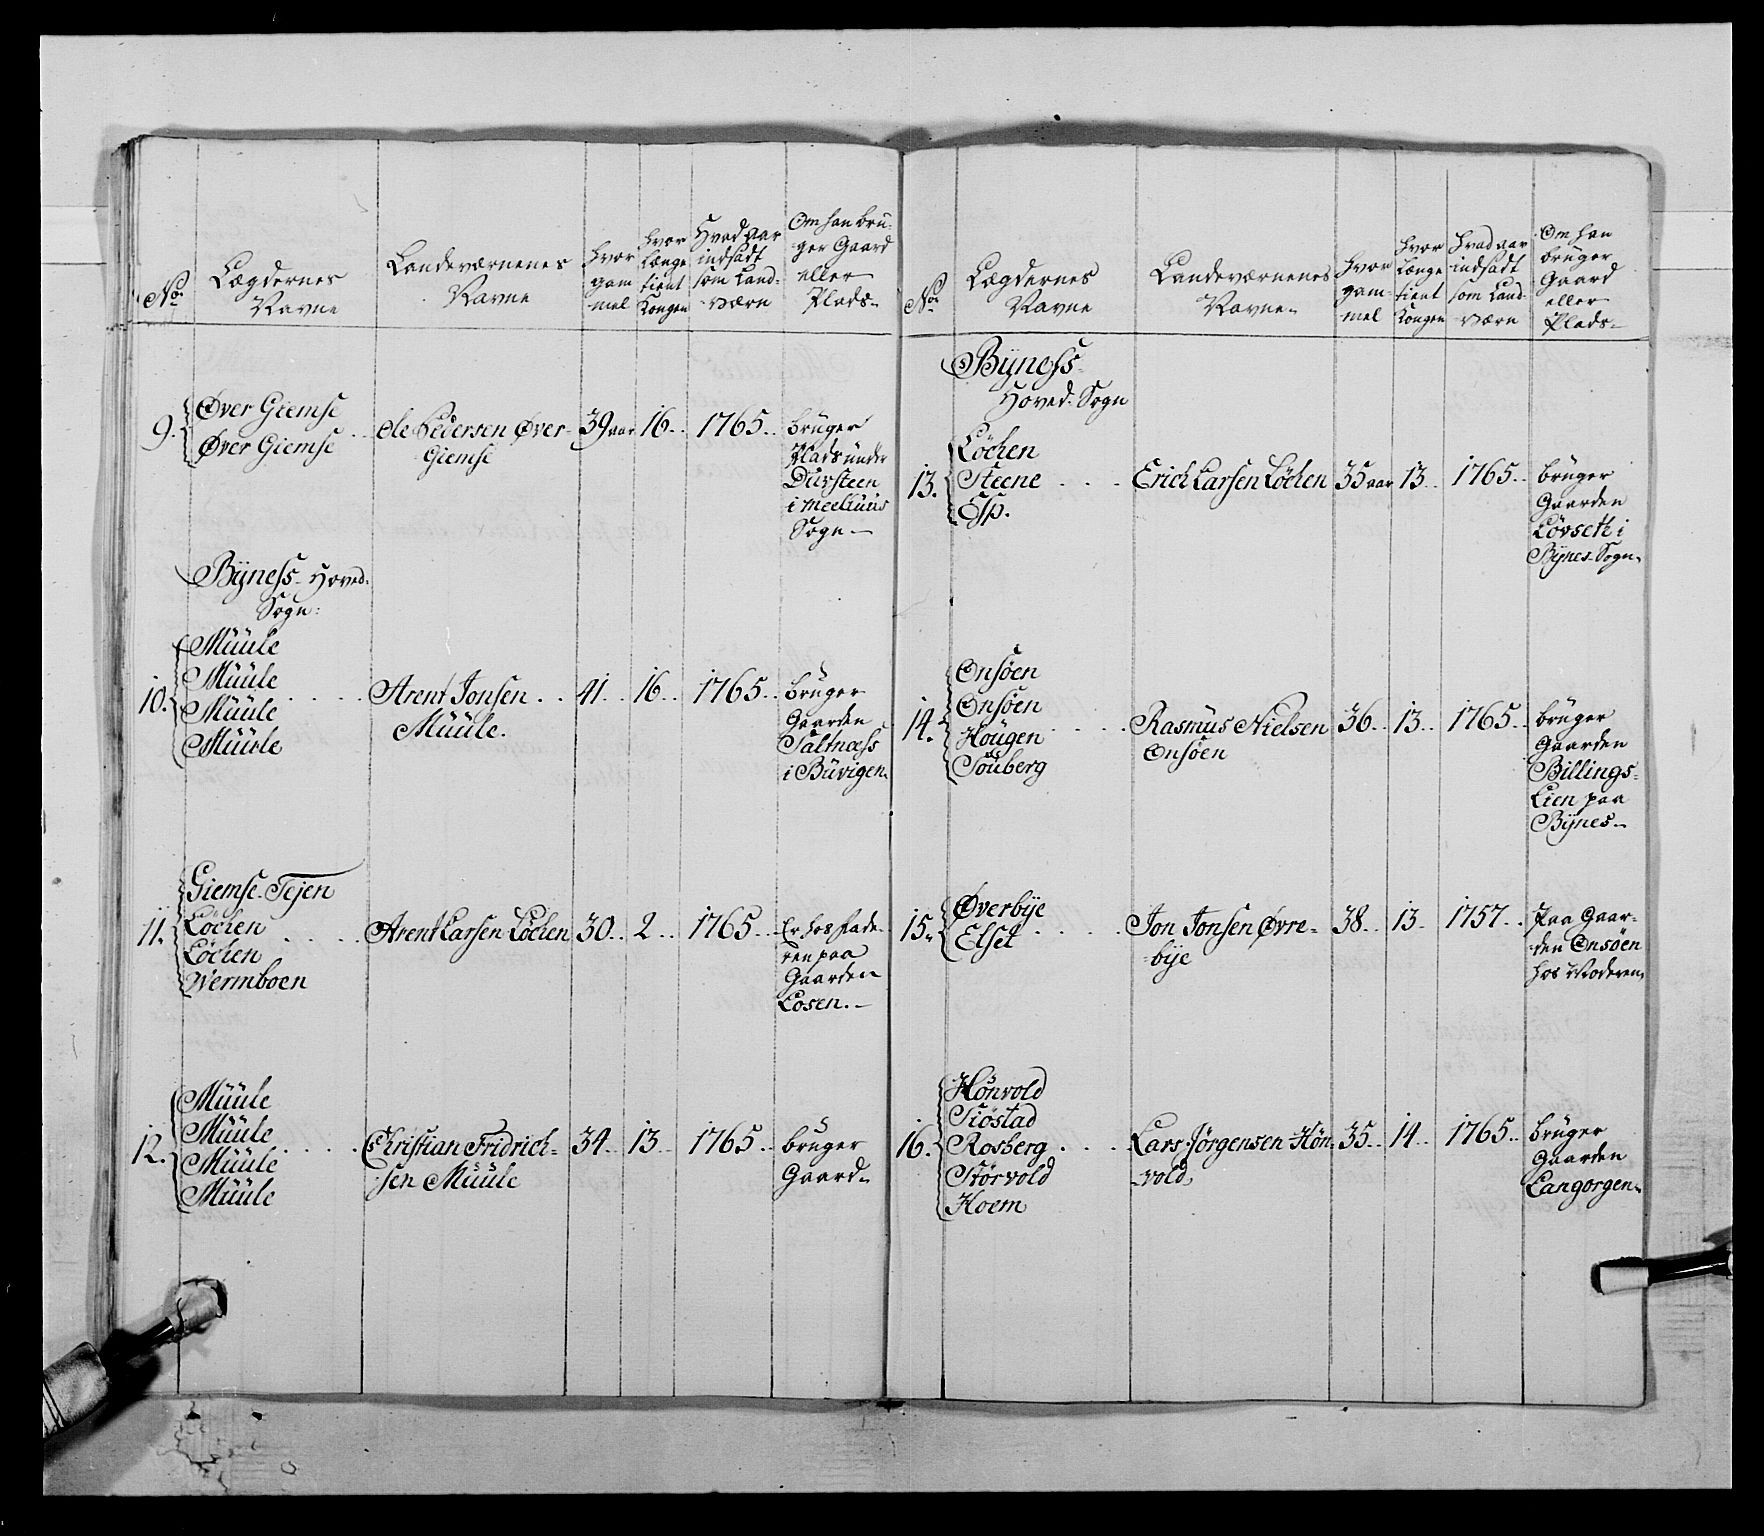 No.
Lægdernes
Navne
Landeværnenes
Navne
Hvor
gam
mel
Hvor
Længe
tient
Kongen
Hvad aar
indsadt
som Land-
værn
Om han bru-
ger Gaard
eller
Plads-
9.
Øver Giemse
Øver Giemse
Ole Pedersen Øver-
Giemse
39 aar
16..
1765..
bruger
Plads under
Duvsteen
i Meelhuus
Sogn-
Bÿness-Hoved-
Sogn:
10.
Müüle
Müüle
Müüle
Müüle
Arent Jonsen..
Müüle.
41..
16..
1765..
bruger
Gaarden
Saltnæss
i Büvigen.
11.
Giemse-Tejen
Löchen
Löchen
Wermboen
Arent Larsen Löchen
30..
2..
1765..
Er hos Fade-
ren paa
Gaarden
Losen.-
12.
Müüle
Müüle
Müüle
Müüle
Christian Fridrich-
sen Müüle
34..
13..
1765..
bruger
Gaard-
No.
Lægdernes
Navne
Landeværnenes
Navne-
Hvor
gam-
mel
Hvor
Længe
tient
Kongen
Hvad aar
indsadt
som Land-
værn
Om han
bruger
Gaard
eller
Plads-
Bÿness-
Hoved-Sogn
13.
Löchen
Steene
Esp.
Erich Larsen Löchen
35 aar
13..
1765..
bruger
Gaarden
Lövseth i
Bÿnes-Sogn.
14.
Onsøen
Onsøen
Hougen
Souberg
Rasmus Nielsen
Onsøen
36..
13..
1765..
bruger
Gaarden
Billings-
Lien paa
Bÿnes-
15.
Øverbÿe
Elset
Jon Jonsen Øvre-
-bÿe
38..
13..
1757..
Paa Gaar-
den Onsøen
hos Moderen,
16.
Hönvold
Siöstad
Rosberg
Störvold
Hoem
Lars Jörgensen Hön-
-vold,
35..
14..
1765..
bruger
Gaarden
Langorgen-